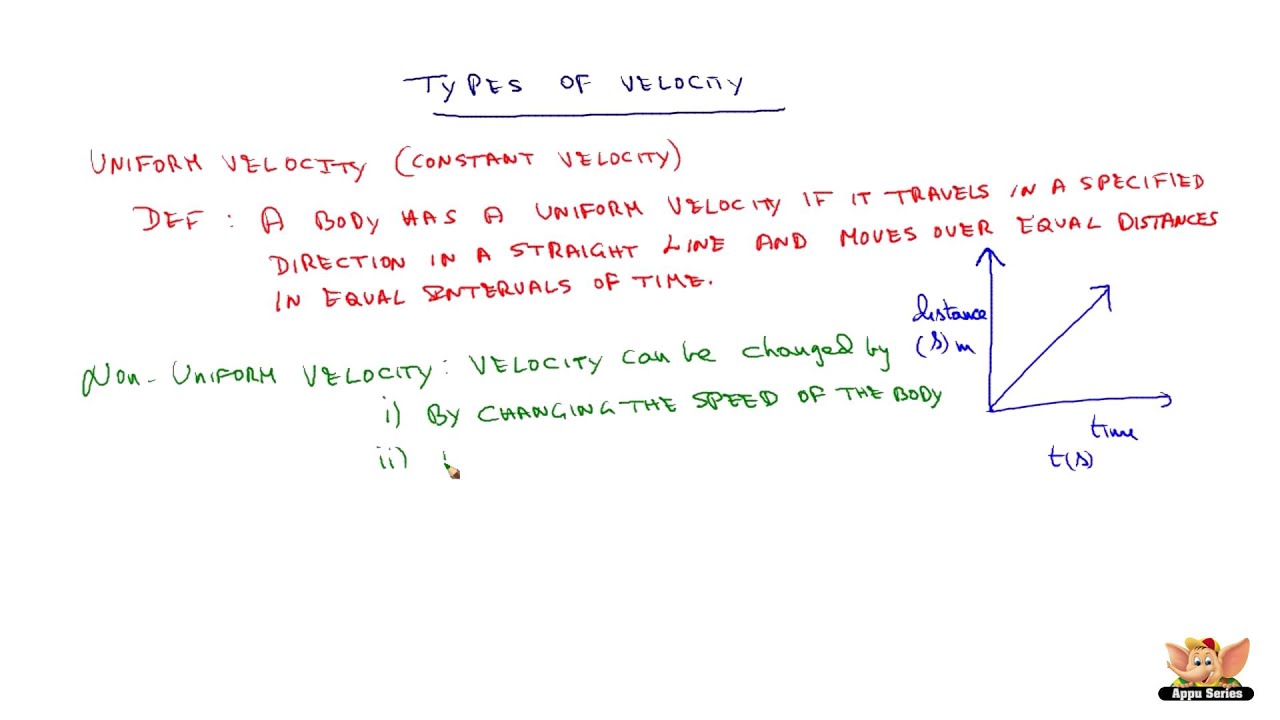 TYPES OF VELOCITY
UNIFORM VELOCITY (CONSTANT VELOCITY)
DEF : A BODY HAS A UNIFORM VELOCITY IF IT TRAVELS IN A SPECIFIED
DIRECTION IN A STRAIGHT LINE AND MOVES OVER EQUAL DISTANCES
IN EQUAL INTERVALS OF TIME.
distance
(s) m
time
t(s)
Non-UNIFORM VELOCITY : VELOCITY can be changed by
i) BY CHANGING THE SPEED OF THE BODY
ii)
Appu Series